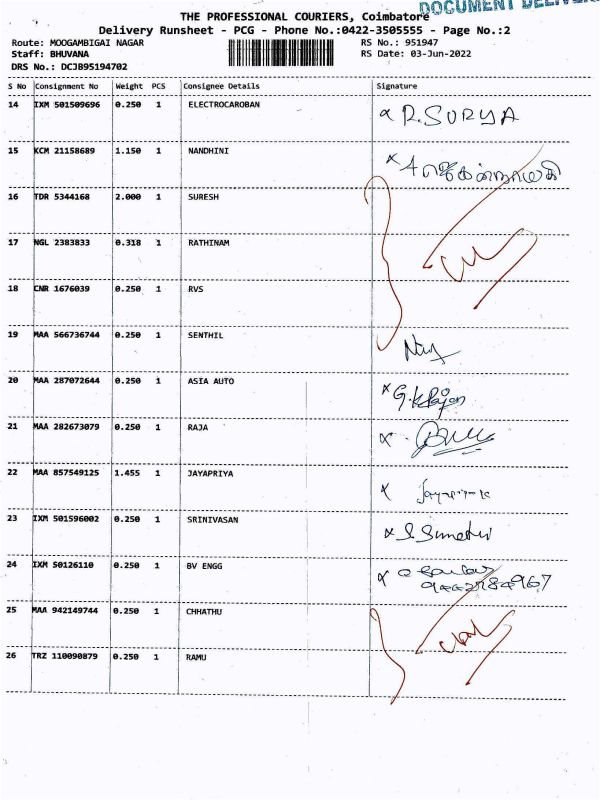 DOCUMENT
THE PROFESSIONAL COURIERS, Coimbatore
Delivery Runsheet - PCG - Phone No.:0422-3505555 - Page No.:2
Route: MOOGAMBIGAI NAGAR RS No.: 951947
Staff: BHUVANA RS Date: 03-Jun-2022
DRS No.: DCJB95194702
S No Consignment No Weight PCS Consignee Details Signature
14 IXM 501509696 0.250 1 ELECTROCAROBAN R.SURYA
15 KCM 21158689 1.150 1 NANDHINI
16 TDR 5344168 2.000 1 SURESH
17 NGL 2383833 0.318 1 RATHINAM
18 CNR 1676039 0.250 1 RVS
19 MAA 566736744 0.250 1 SENTHIL
20 MAA 287072644 0.250 1 ASIA AUTO
21 MAA 282673079 0.250 1 RAJA
22 MAA 857549125 1.455 1 JAYAPRIYA
23 IXM 501596002 0.250 1 SRINIVASAN
24 IXM 50126110 0.250 1 BV ENGG
25 MAA 942149744 0.250 1 CHHATHU
26 TRZ 110090879 0.250 1 RAMU